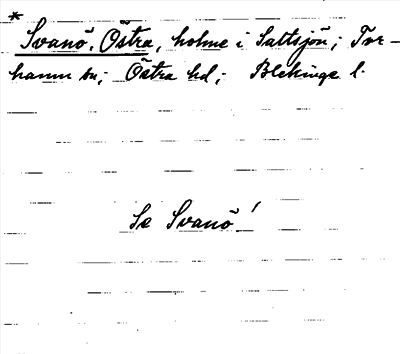 *
Svanö, Östra, holme i Saltsjön; Tor-
hamn sn; Östra hd; Blekinge l.
Se Svanö!